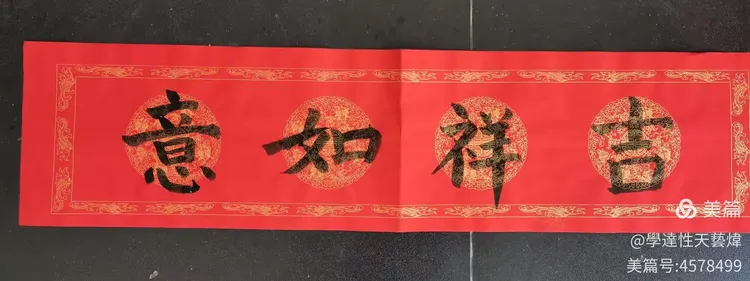 吉祥如意
美篇
@學達性天藝煒
美篇号:4578499